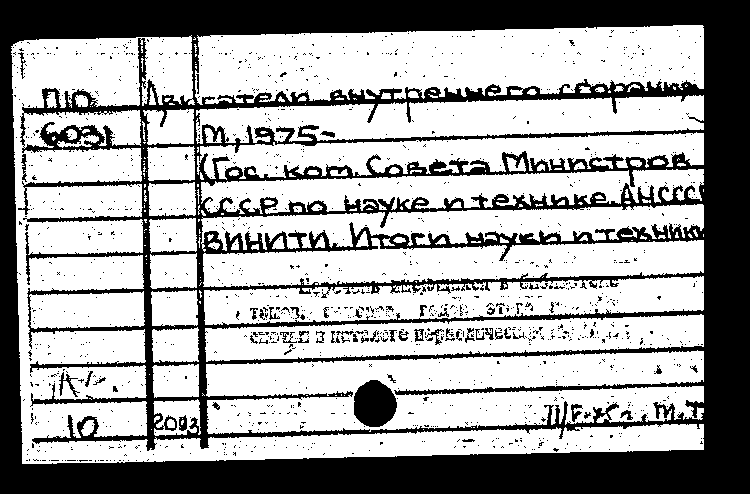 ПЮ Двигатели внутреннего сгорания.
6031 М, 1975-
(Гос. ком. Совета Министров
СССР по науке и технике. АН СССР
ВИНИТИ. Итоги науки и техники
Перечень имеющихся в библиотеке
томов, номеров, годов этого
смотри в каталоге периодических
10 2003